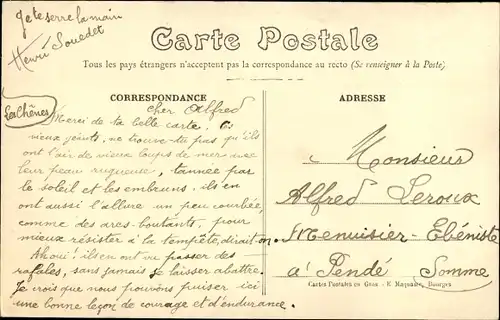 Je te serre la main
Henri Souedet
Carte Postale
Tous les pays étrangers n'acceptent pas la correspondance au recto (Se renseigner à la Poste).
CORRESPONDANCE
Cher Alfred
Les Chênes
Merci de ta belle carte. Ces
vieux , ne trouve-tu pas qu'ils
ont l'air de vieux loups de mer avec
leur peau rugueuse, tannée par
le soleil et les embruns. ils en
ont aussi l'allure un peu courbée,
comme des arcs-boutants, pour
mieux résister à la tempête, dirait-on.
Ah oui! ils en ont vu passer des
rafales, sans jamais se laisser abattre.
Je crois que nous pouvons puiser ici
une bonne leçon de courage et d'endurance.
ADRESSE
Monsieur
Alfred Leroux
Menuisier-Ebéniste
à Pendé Somme
Cartes Postales en Gros - E. Maquaire, Bourges